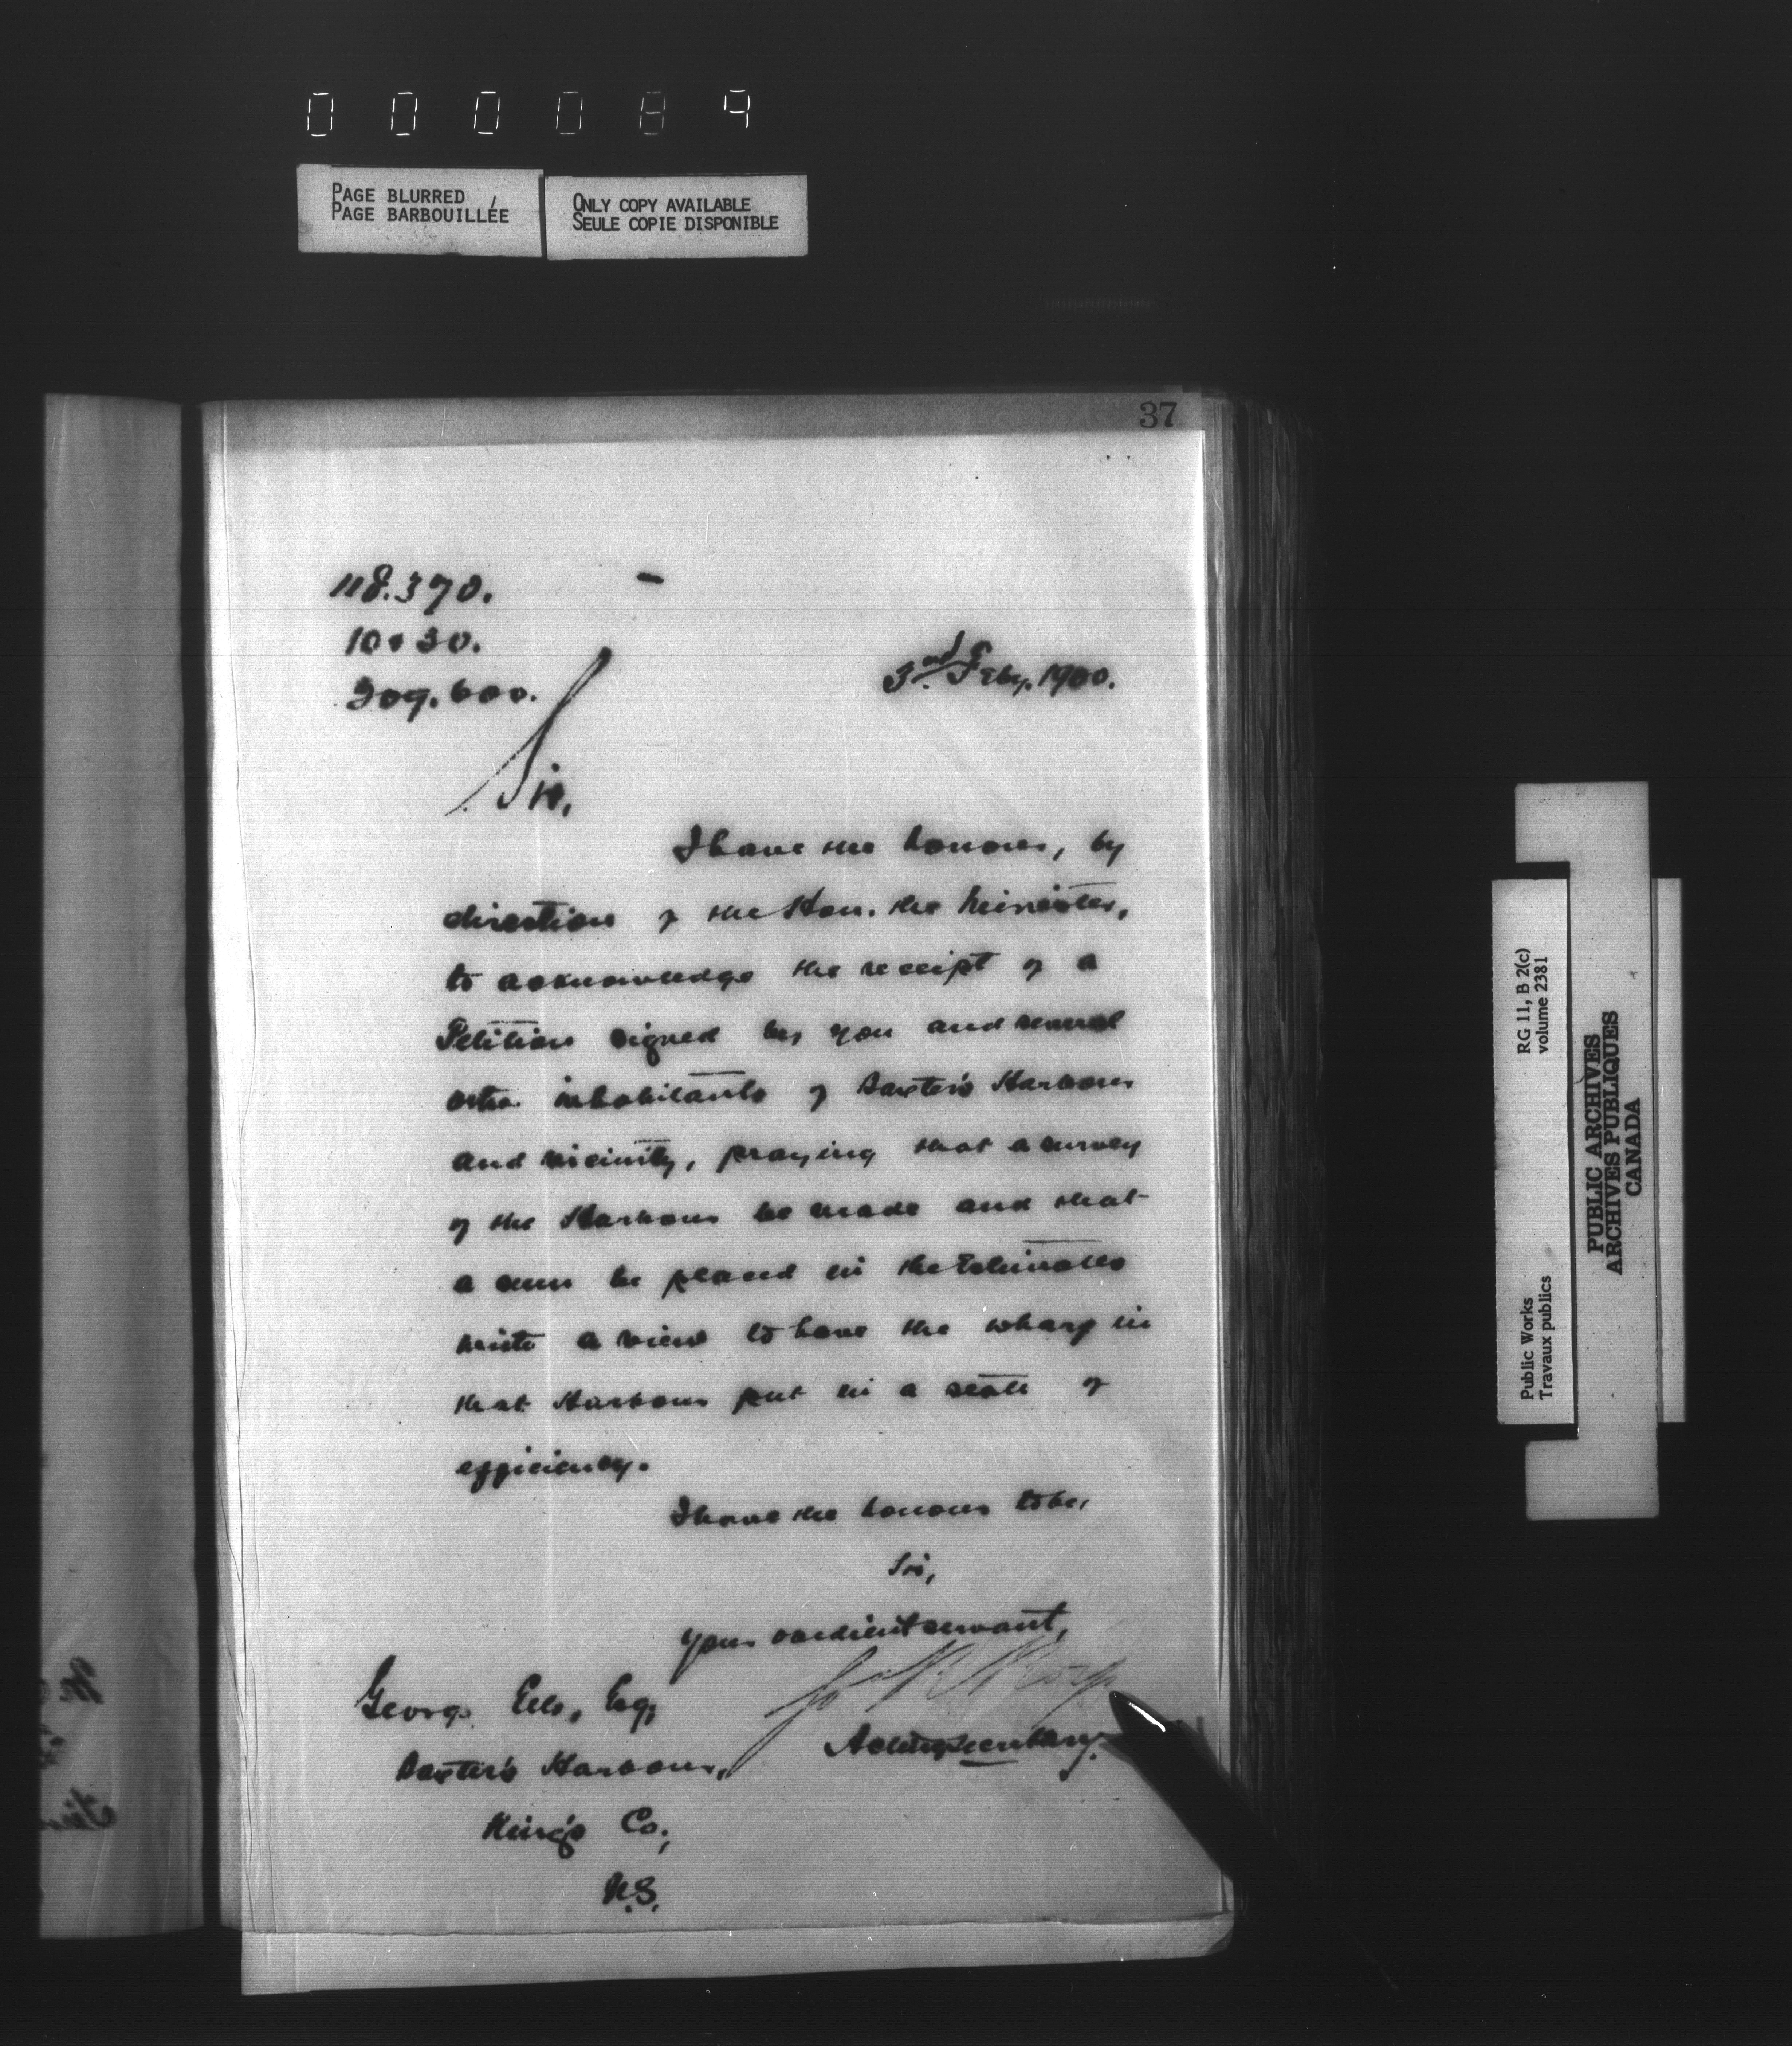 000089
PAGE BLURRED
PAGE BARBOUILLÉE
ONLY COPY AVAILABLE
SEULE COPIE DISPONIBLE
37
118.370.
10 30.
209.600.
3rd Feby. 1900.
Sir,
I have the honour, by
direction of the Hon. the Minister,
to acknowledge the receipt of a
Petition signed by you and several
other inhabitants of Baxter's Harbour
and vicinity, praying that a survey
of the Harbour be made and that
a sum be placed in the Estimates
with a view to have the wharf in
that Harbour put in a state of
efficiency.
I have the honour to be,
Sir,
Your obedient servant,
Acting Secretary.
George Ells, Esq;
Baxter's Harbour,
King's Co.,
N.S.
RG 11, B 2(c)
volume 2381
Public Works
Travaux publics
PUBLIC ARCHIVES
ARCHIVES PUBLIQUES
CANADA